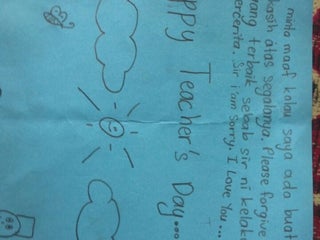 minta maaf kalau saya ada buat
kasih atas segalanya. Please forgive
yang terbaik sebab sir ni
Sir i'am sorry. I Love You...
Teacher's Day...